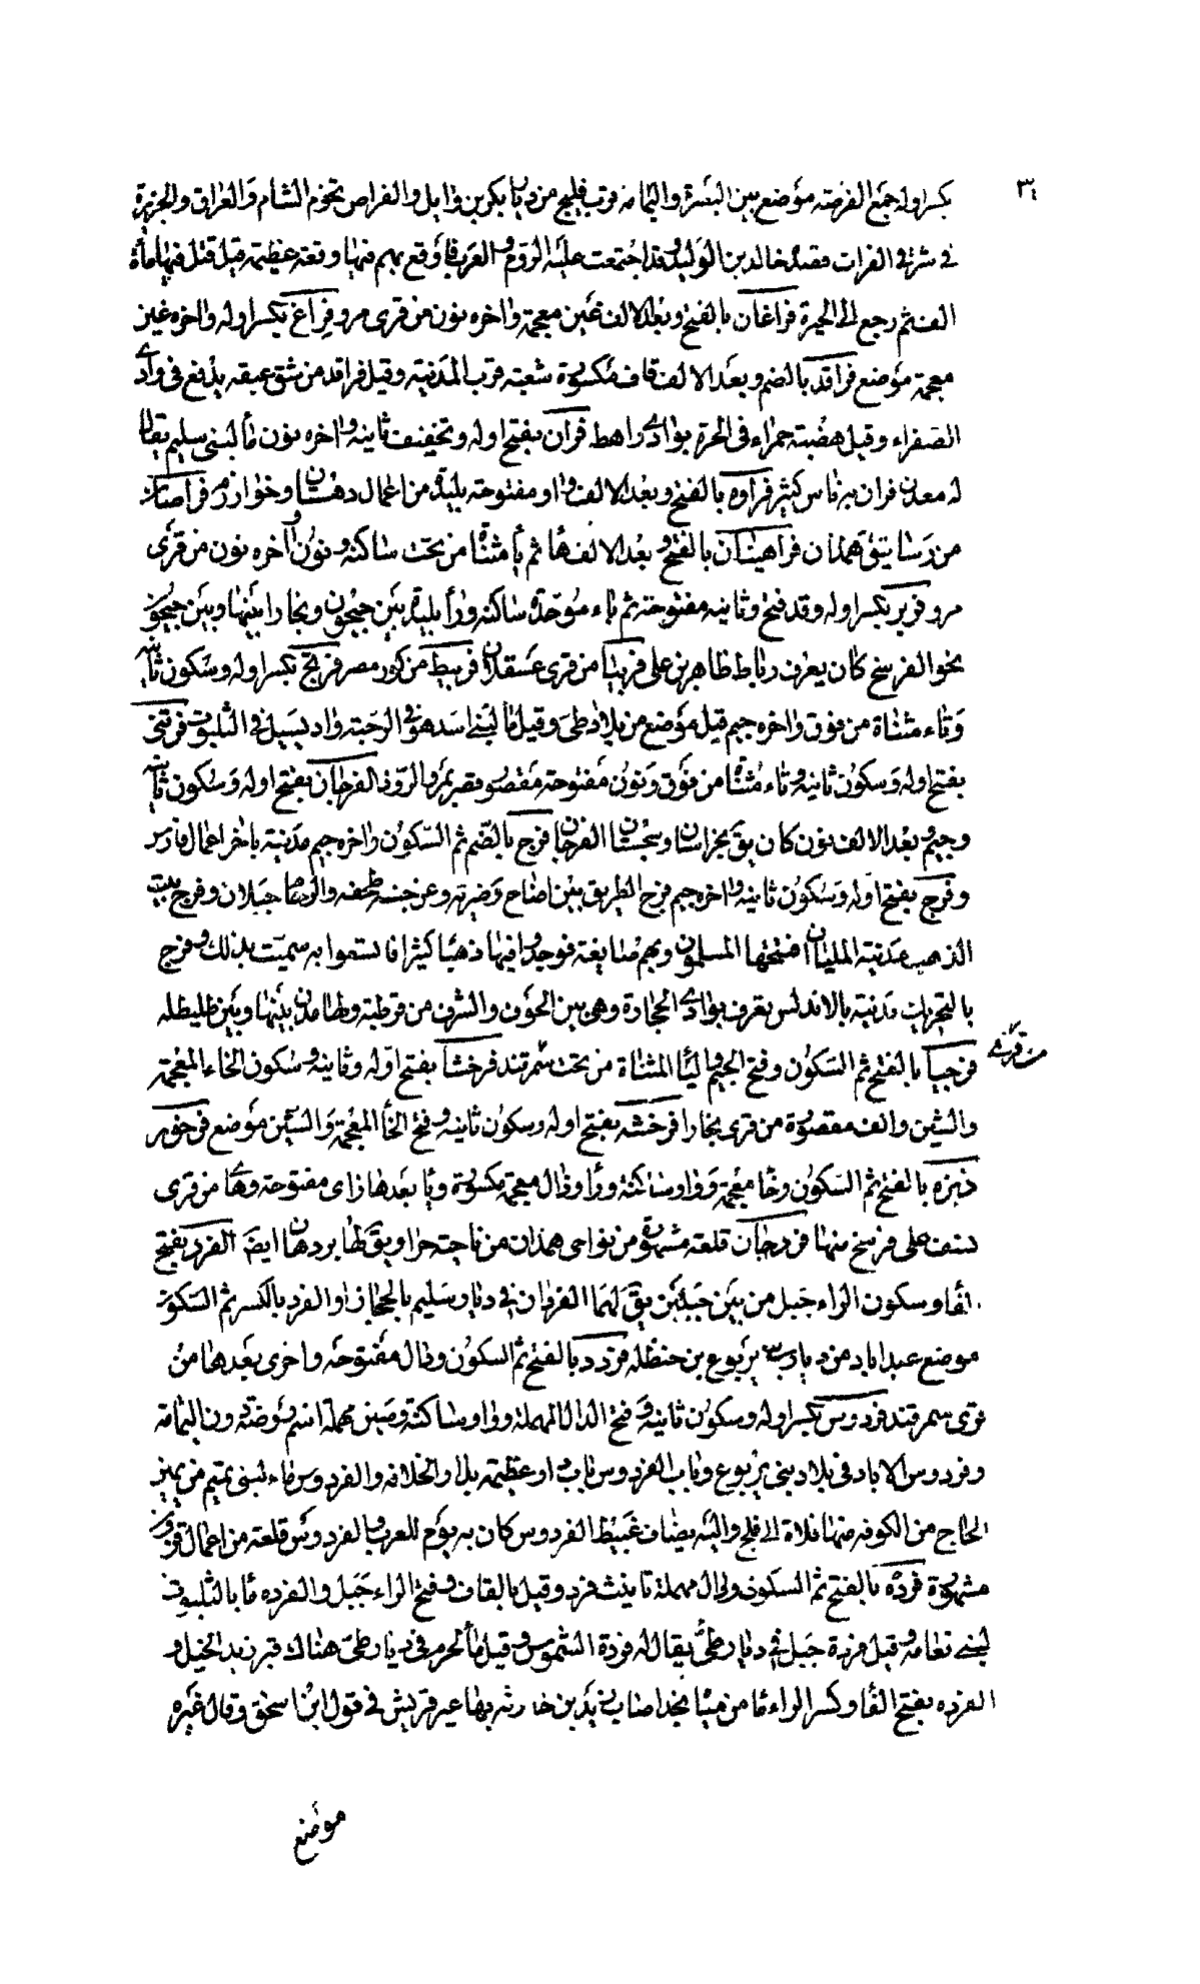 ٣٤
بكسر اوله جمع الفرضة موضع بين البصرة واليمامة قرب فليج من ديار بكر بن وايل والفراض تخوم الشام والعراق والجزيرة
في شرقي الفرات قصده خالد بن الوليد وقد اجتمعت عليه الروم والعرب فاوقع بهم فيها وقعة عظيمة قيل قتل فيها مأة
الف ثم رجع الى الحيرة فراغان بالفتح وبعد الالف غين معجمة واخره نون من قرى مرو فراغ بكسر اوله واخره غين
معجمة موضع فراقد بالضم وبعد الالف قاف مكسورة شعبة قرب المدينة وقيل فراقد من شق عيقه يدفع في وادي
الصفراء وقيل هضبة حمراء في الحرة بوادي راهط فران بفتح اوله وتخفيف ثانيه واخره نون ماء لبني سليم يقال
له معدن فران به ناس كثير فراوه بالفتح وبعد الالف واو مفتوحة بليدة من اعمال دهستان وخوارزم
من رساتيق همدان فراهينان بالفتح وبعد الالف ها ثم يا مثناة من تحت ساكنة ونون واخره نون من قرى
مرو فربر بكسر اوله وقد فتح وثانيه مفتوحة ثم باء موحدة ساكنة ورا بليدة بين جيحون وبخارا بينها وبين جيحون
نحو الفرسخ كان يعرف رباط طاهر بن علي فربيا من قرى عسقلان فربيط من كور مصر فرتاج بكسر اوله وسكون ثانيه
وتاء مثناة من فوق واخره جيم قيل موضع من بلاد طي وقيل ماء لبني اسد وهو في الرحبة واد يسيل في الثلبوت فرتنى
بفتح اوله وسكون ثانيه وتاء مثناة من فوق ونون مفتوحة مقصور قصر بمرو الروذ الفرجان بفتح اوله وسكون ثانيه
وجيم وبعد الالف نون كان يق بخراسان وسجستان الفرجان فرج بالضم ثم السكون واخره جيم مدينة باخر اعمال فارس
وفرج بفتح اوله وسكون ثانيه واخره جيم فرج الطريق بين اضاخ وضرية وعن جنبه طخفه والرجام جبلان وفرج بيت
الذهب مدينة المليان افتتحها المسلمون وبهم ضايقة فوجدوا فيها ذهبا كثيرا فاتسعوا به سميت بذلك وفرج
بالتحريك مدينة بالاندلس يعرف بوادي الحجارة وهي بين الجوف والشرق من قرطبة ولها مدن بينها وبين طليطله
من قرى
فرجيا بالفتح ثم السكون وفتح الجيم واليا المثناة من تحت سمرقند فرخشا بفتح اوله وثانيه وسكون الخاء المعجمة
والشين والف مقصورة من قرى بخارا فرخشه بفتح اوله وسكون ثانيه وفتح الخا المعجمة والشين موضع فرخور
ديزه بالفتح ثم السكون وخا معجمة وواو ساكنة ورا ودال معجمة مكسورة ويا بعدها زاى مفتوحة وها من قرى
نسف على فرسخ منها فردجان قلعة مشهورة من نواحي همدان من ناحية جرا ويق لها بردهان ايضا الفرد بفتح
الفا وسكون الراء جبل من بين جبلين يق لهما الفردان في ديار سليم بالحجاز او الفرد بالكسر ثم السكون
موضع عبداباد من ديار يربوع بن حنظله فردد بالفتح ثم السكون ودال مفتوحة واخرى بعدها من
قرى سمرقند فردوس بكسر اوله وسكون ثانيه وفتح الدال المهملة وواو ساكنة وسين مهملة اسم روضة دون اليمامة
وفردوس الاياد في بلاد بني يربوع وباب الفردوس باب او عظيمة بدار الخلافة والفردوس ماء لبني تميم من يمين
الحاج من الكوفه منها فلاة الى فلج واليه يضاف غبيط الفردوس كان به يوم للعرب والفردوس قلعة من اعمال قزوين
مشهورة فرده بالفتح ثم السكون ودال مهملة تانيث فرد وقيل بالقاف وفتح الراء جبل والفرده ما بالثلبوت
لبني نعامه وقيل فردة جبل في ديار طي يقال له فردة الشموس وقيل ماء لجرم في ديار طي هنالك قبر زيد الخيل و
الفرده بفتح الفا وكسر الراء ما من مياه نجد اصاب زيد بن حارثه بها عير قريش في قول ابن اسحق وقال غيره
موضع